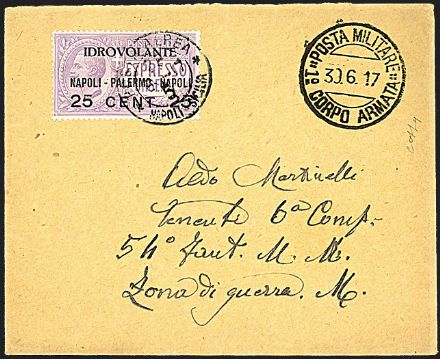 IDROVOLANTE
ESPRESSO
NAPOLI - PALERMO - NAPOLI
25 CENT. 25
AEREA
NAPOLI
POSTA MILITARE
30 6 17
1° CORPO ARMATA
Aldo Martinelli
Tenente 6a Comp.
54° Fant. M. M.
Zona di guerra. M.